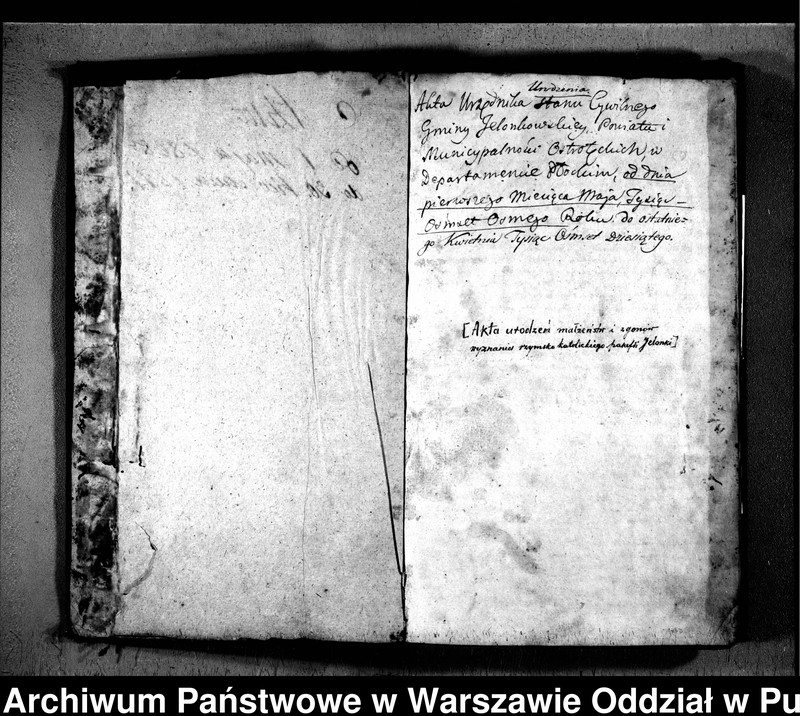 Urodzenia
Akta Urzędnika Stanu Cywilnego
Gminy Jelonkowskiey, Powiatu i
Municypalności Ostrołęckich, w
Departamencie Płockim, od dnia
pierwszego Miesiąca Maja, Tysiąc
Osmset Osmego Roku. do ostatnie-
go Kwietnia Tysiąc Ośmset Dziesiątego.
[Akta urodzeń małżeństw i zgonów
wyznania rzymsko katolickiego parafii Jelonki]
Archiwum Państwowe w Warszawie Oddział w Pu